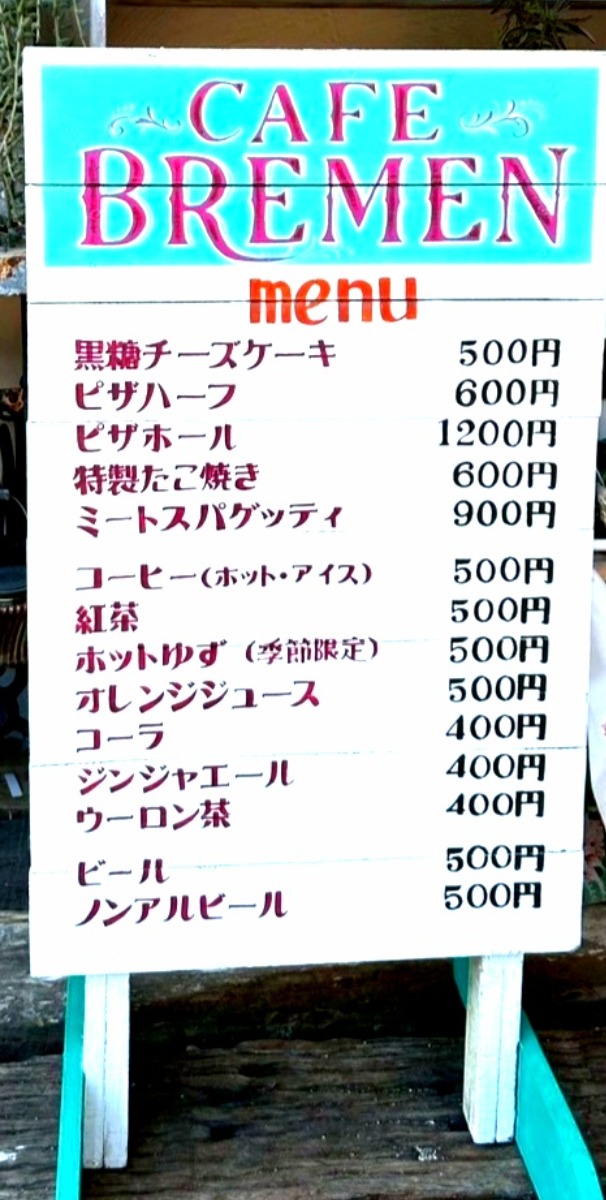 CAFE
BREMEN
menu
黒糖チーズケーキ 500円
ピザハーフ 600円
ピザホール 1200円
特製たこ焼き 600円
ミートスパゲッティ 900円
コーヒー(ホット・アイス) 500円
紅茶 500円
ホットゆず(季節限定) 500円
オレンジジュース 500円
コーラ 400円
ジンジャエール 400円
ウーロン茶 400円
ビール 500円
ノンアルビール 500円